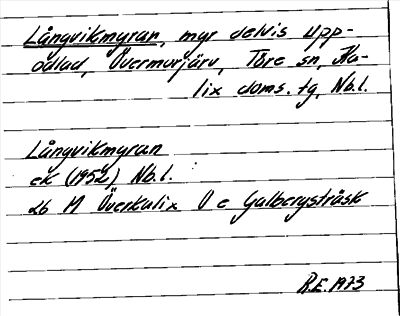 Långvikmyran, myr delvis upp-
odlad, Övermorjärv, Töre sn, Ka-
lix doms. tg, Nb.l.
Långvikmyran
ek (1952) Nb.l.
26 M Överkalix O e Galbergsträsk
R.E. 1973